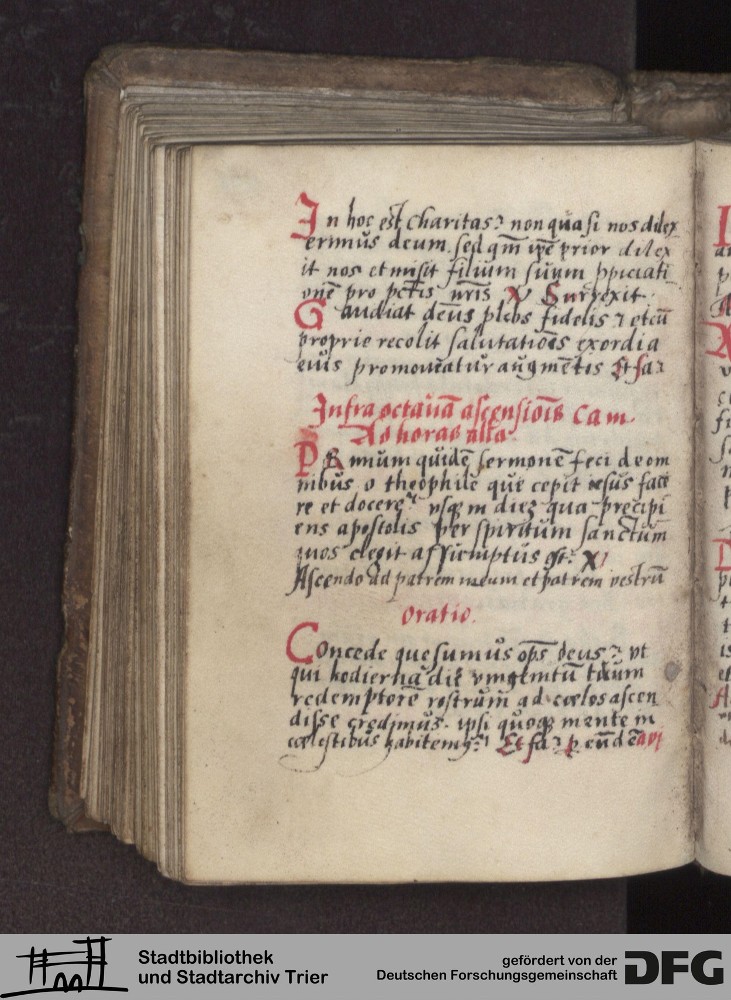 In hoc est charitas? non quasi nos dilex
erimus deum. sed qm̄ ip̄e prior dilex
it nos et misit filium suum ppiciati
onē pro pctīs nrīs V Surrexit
Gaudiat deus plebs fidelis ? et cū
proprie recolit salutatiois exordia
eius promoueatur augmētis Et fa?
Infra octauā ascensiois Cam
Ad horas alla
PRimum quidē sermonē feci de om
nibus o theophile que cepit iesus face
re et docere vsqe in diē qua precipi
ens apostolis per spiritum sanctum
quos elegit assumptus est. X
Ascendo ad patrem meum et patrem vestrū
Oratio.
Concede quesumus op̄s deus ? vt
qui hodierna die vnigenitū tuum
redemptorē nostrum ad cœlos ascen
disse credimus. ipsi quoqe mente in
cœlestibus habitemus Et fa? P eundē
Stadtbibliothek
und Stadtarchiv Trier
gefördert von der
Deutschen Forschungsgemeinschaft
DFG